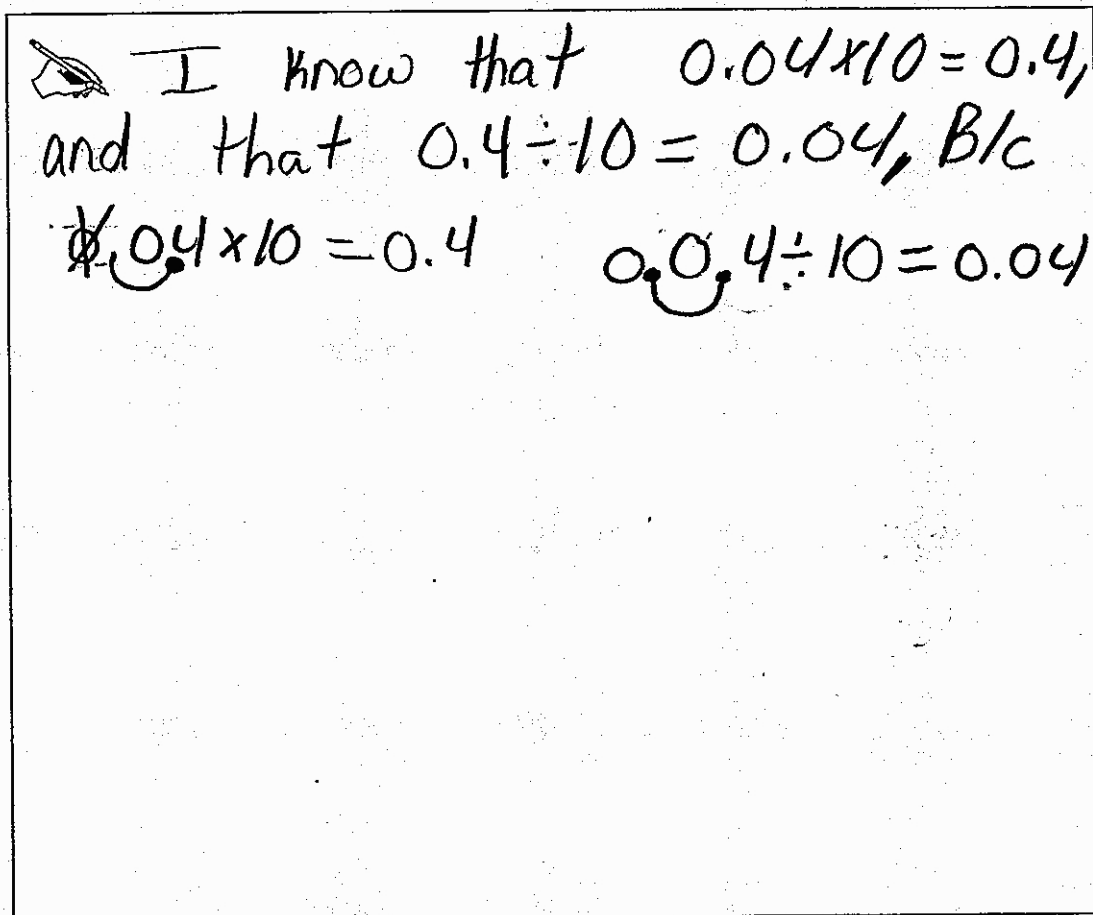 I know that 0.04x10 = 0.4,
and that 0.4÷10 = 0.04, B/c
0.04x10 = 0.4 0.0.4÷10 = 0.04